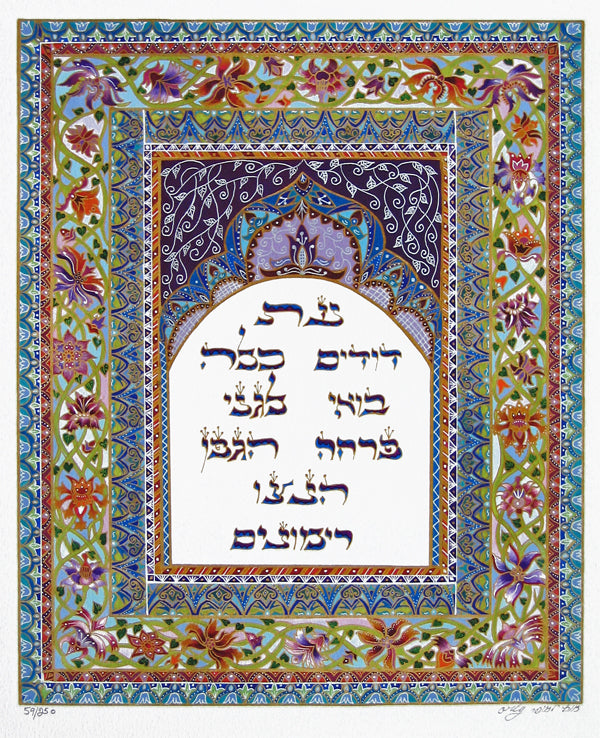 עת
דודים כלה
בואי לגני
פרחה הגפן
הנצו
רימונים
59/250